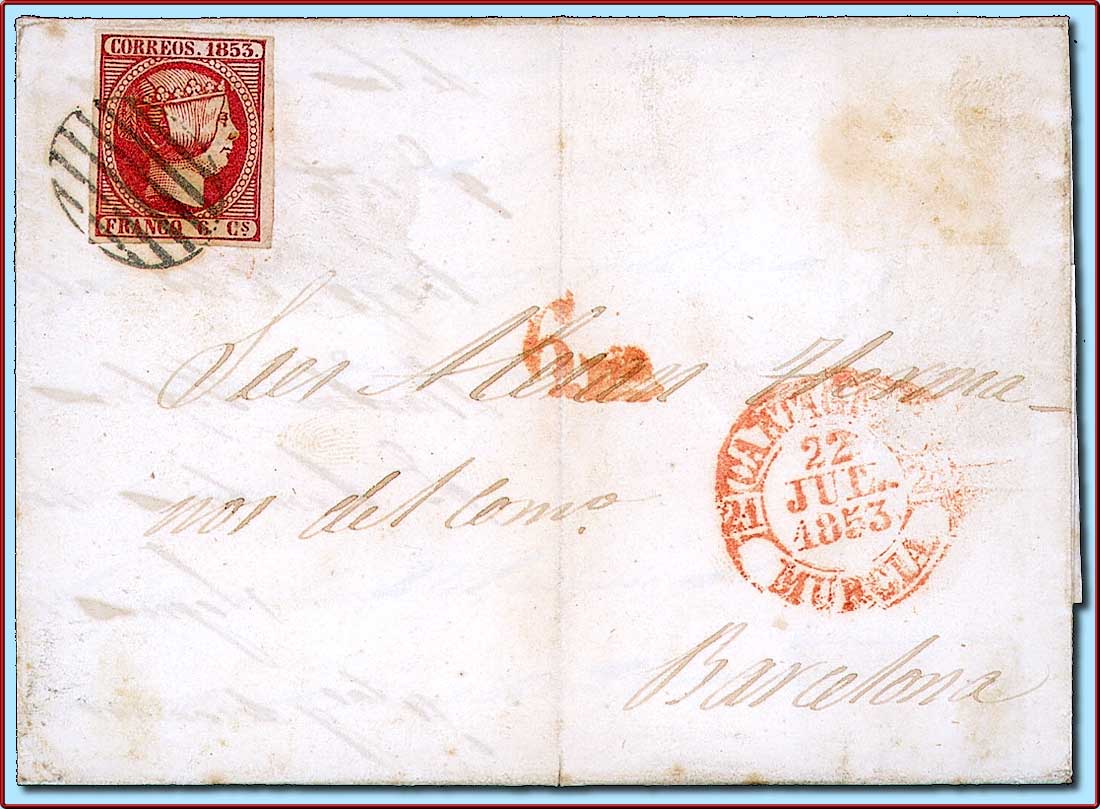 CORREOS. 1853.
FRANCO 6. Cs
6
Sres
nos del Como
CARTAGENA
21
22
JUL.
1853
MURCIA
Barcelona